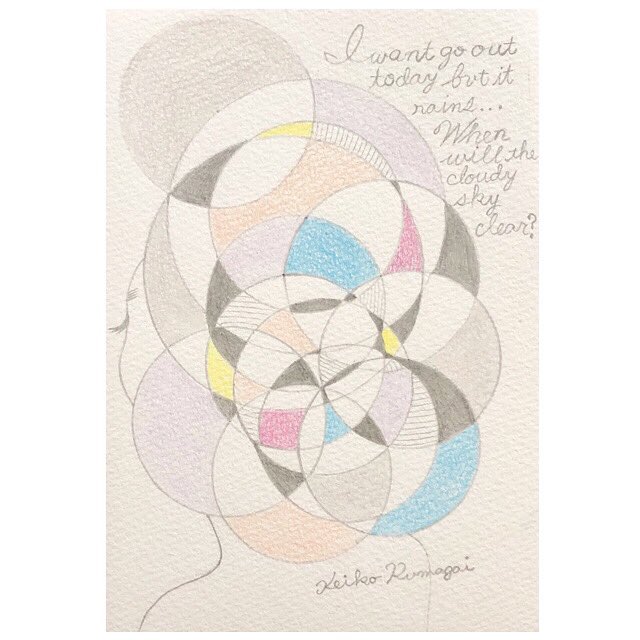 I want go out
today but it
rains...
When
will the
cloudy
sky
clear?
Keiko Kumagai